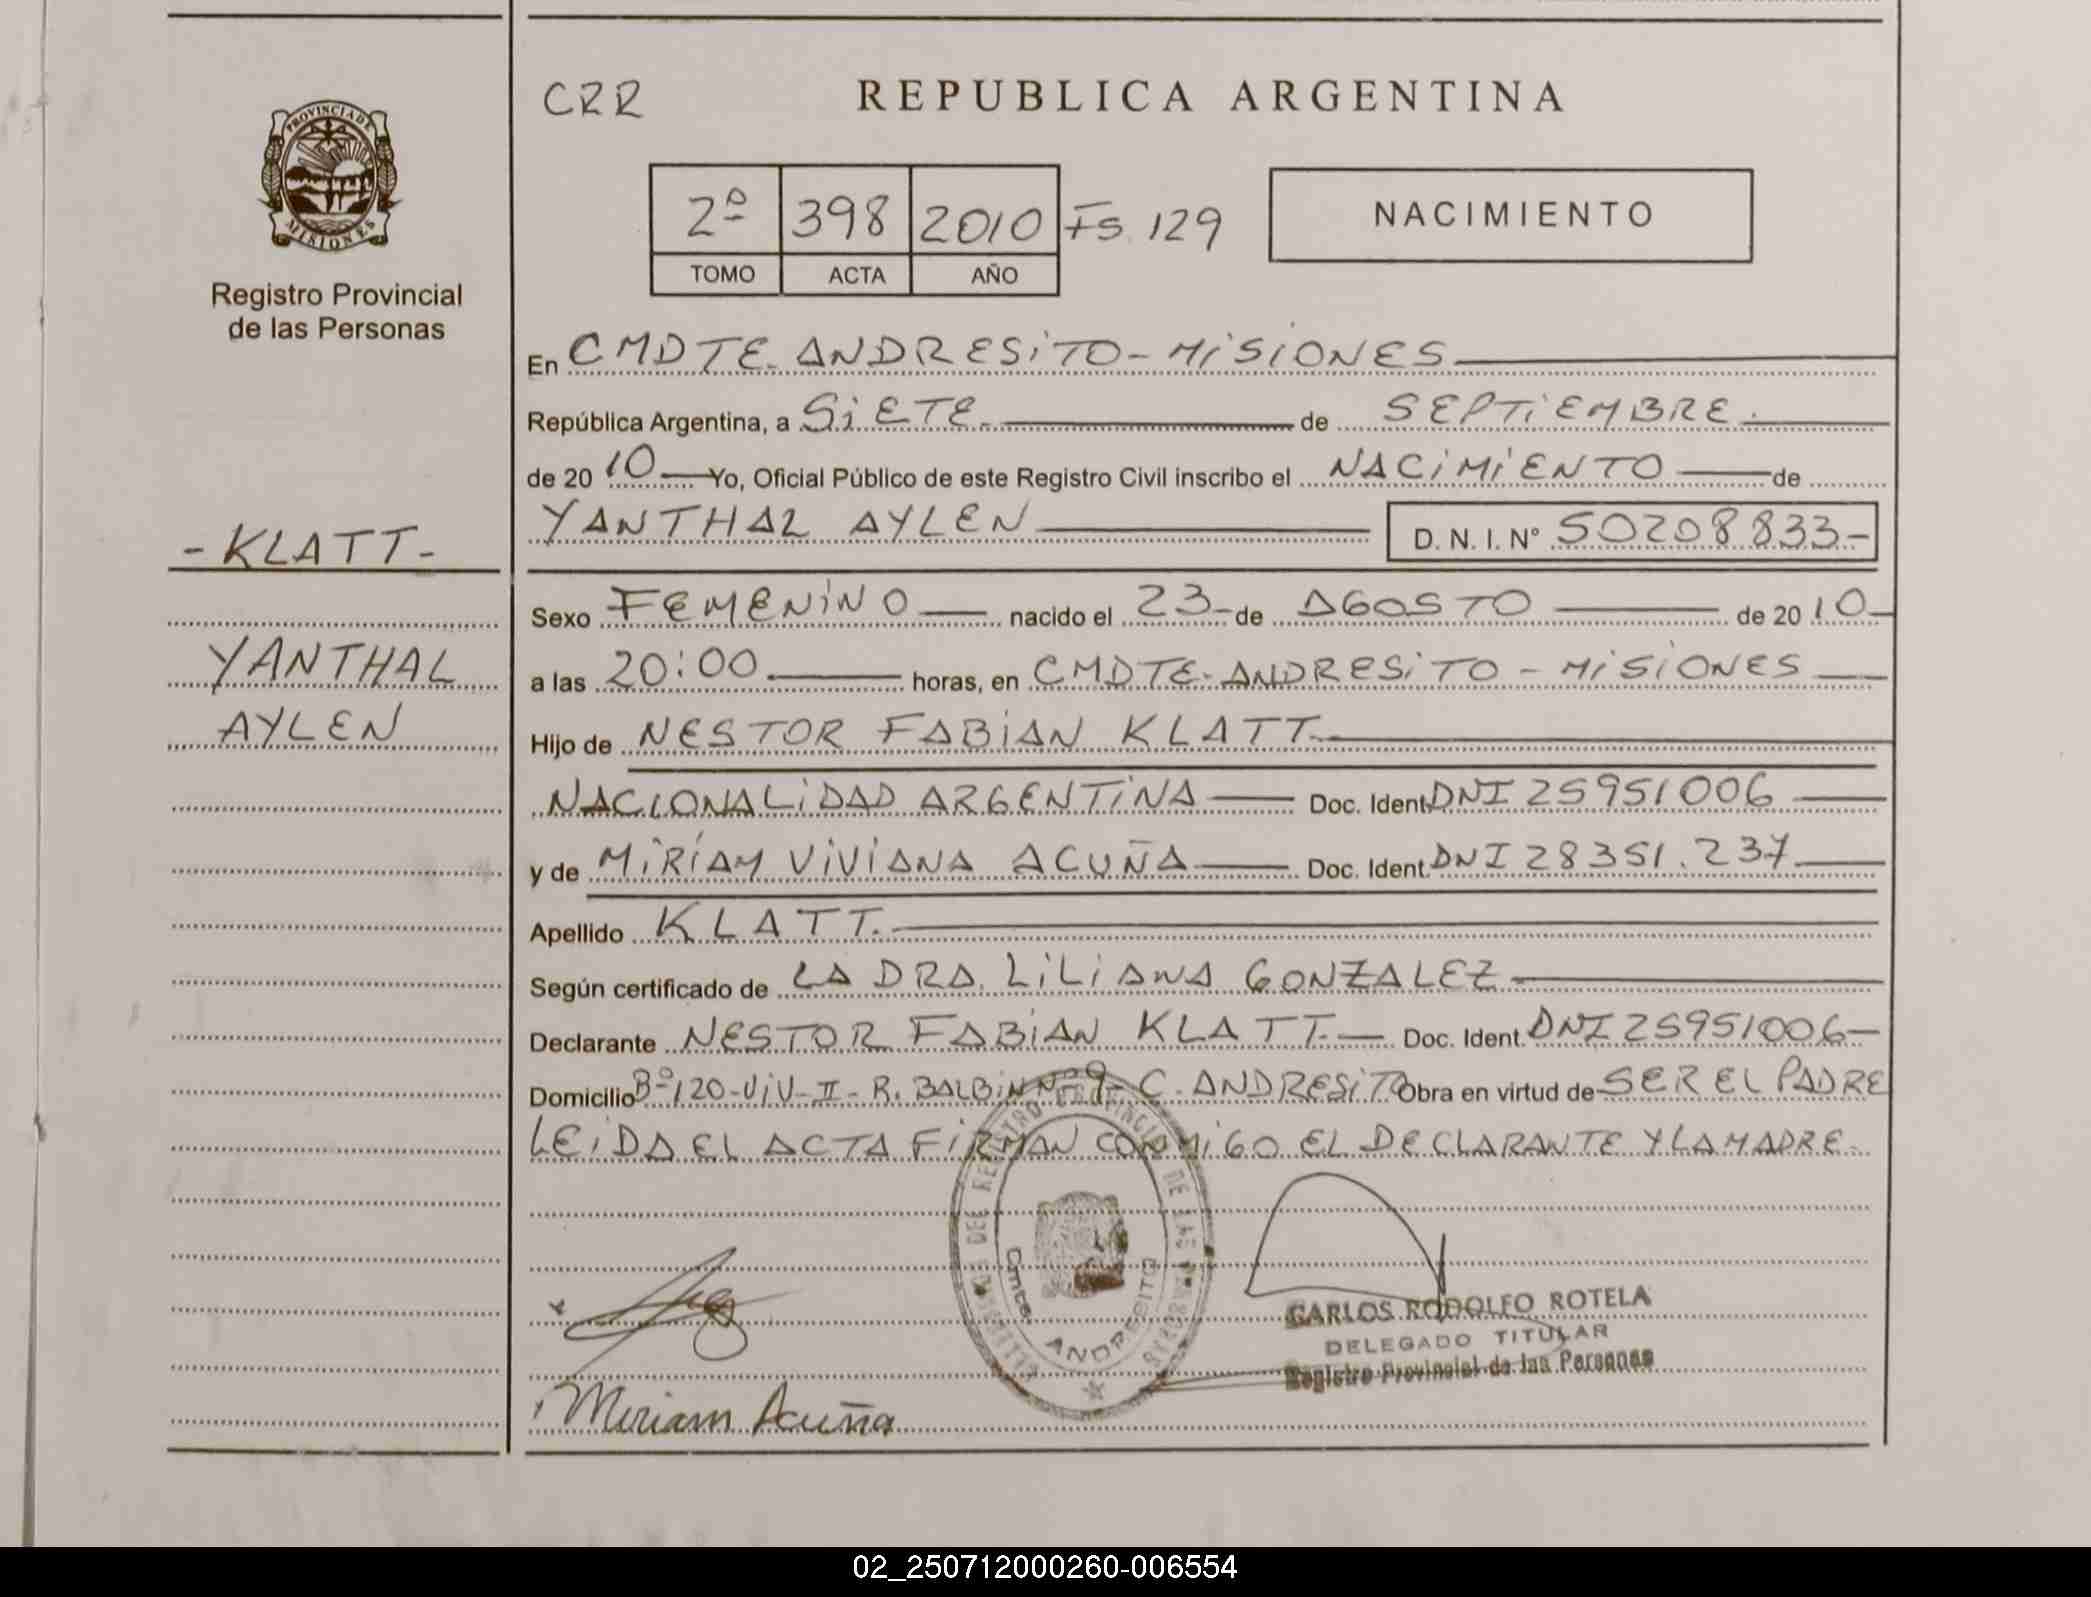 CRR
REPUBLICA ARGENTINA
PROVINCIA DE
MISIONES
2º 398 2010 Fs. 129
TOMO ACTA AÑO
NACIMIENTO
Registro Provincial
de las Personas
En CMDTE. ANDRESITO - MISIONES
República Argentina, a SIETE de SEPTIEMBRE.
de 20 10 Yo, Oficial Público de este Registro Civil inscribo el NACIMIENTO de
YANTHAL AYLEN D. N. I. Nº 50208833-
- KLATT -
YANTHAL
AYLEN
Sexo FEMENINO nacido el 23 de AGOSTO de 20 10
a las 20:00 horas, en CMDTE. ANDRESITO - MISIONES
Hijo de NESTOR FABIAN KLATT.
NACIONALIDAD ARGENTINA Doc. Ident. DNI 25951006
y de MIRIAM VIVIANA ACUÑA Doc. Ident. DNI 28351.237
Apellido KLATT.
Según certificado de LA DRA. LILIANA GONZALEZ
Declarante NESTOR FABIAN KLATT. Doc. Ident. DNI 25951006
Domicilio Bº 120-VIV-II-R. BALBIN Nº 9- C. ANDRESITO Obra en virtud de SER EL PADRE
LEIDA EL ACTA FIRMAN CONMIGO EL DECLARANTE Y LA MADRE.
DEL REGISTRO PROVINCIAL DE LAS PERSONAS
Cmte. ANDRESITO
CARLOS RODOLFO ROTELA
DELEGADO TITULAR
Registro Provincial de las Personas
Miriam Acuña
02_250712000260-006554